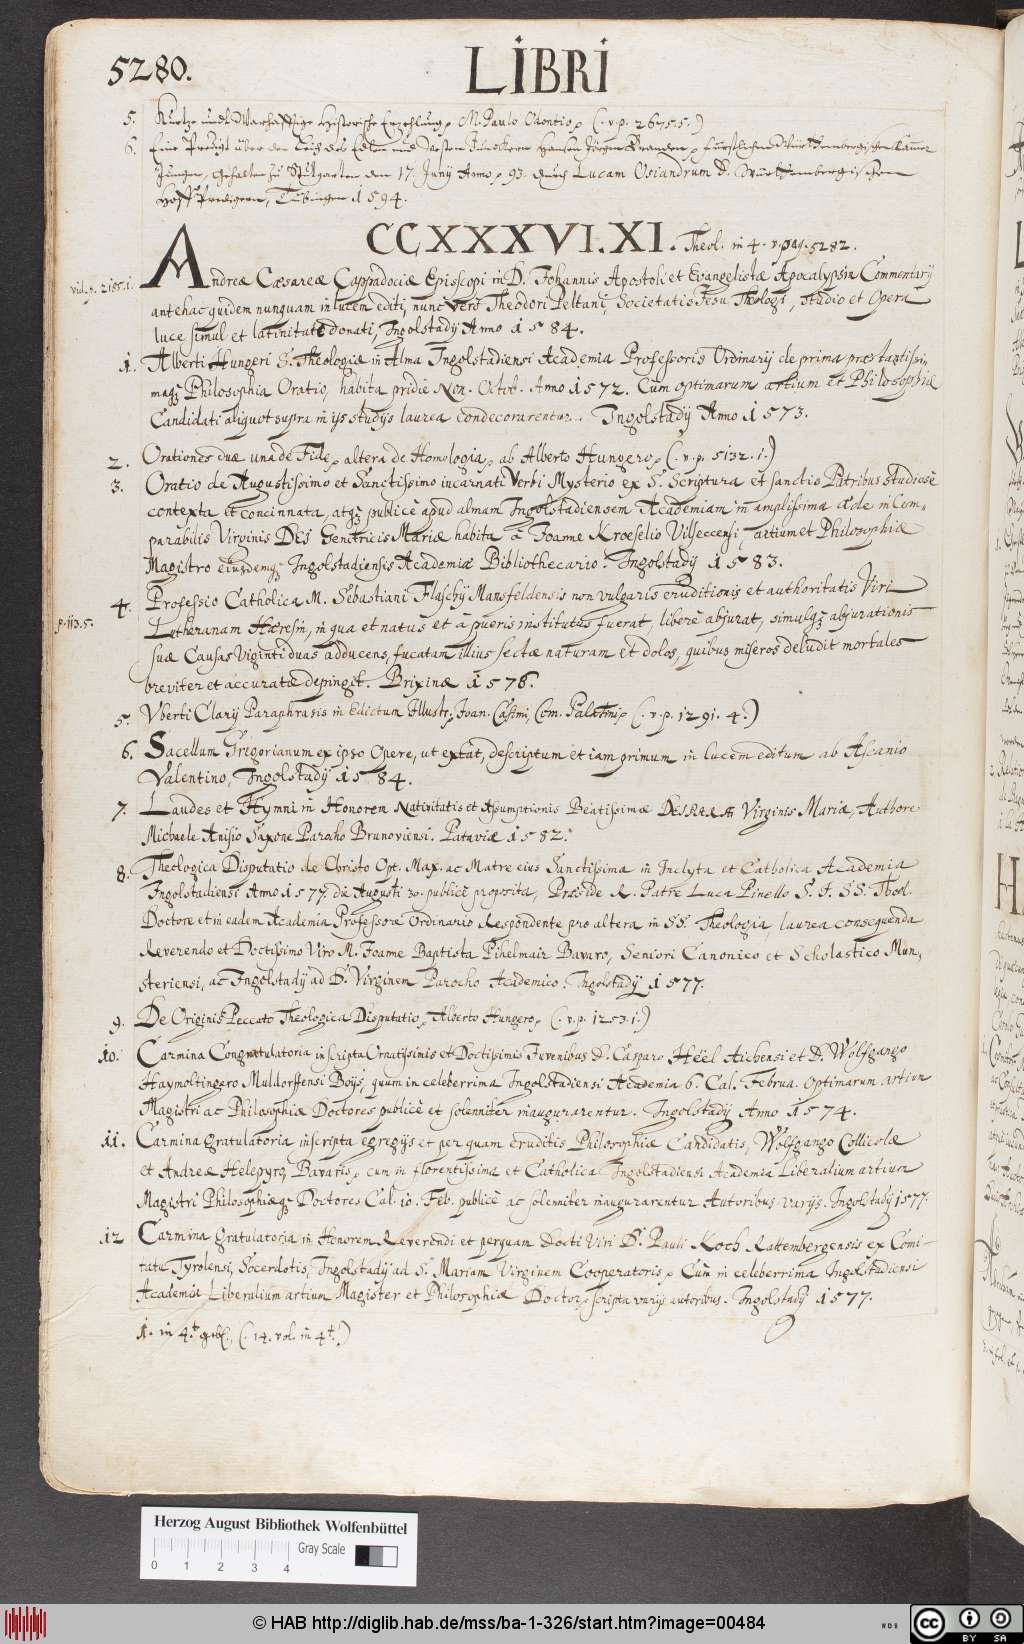 5280.
LIBRI
5. Kurtze und Warhafftige Historische Erzehlung, M. Paulo Odontio, (. v. p. 2675. 5. )
6. Eine Predigt über der Leich des Edlen und Vesten Junckern Hansen Jörgen Branden, fürstlichen Würtembergischen Cammer
Jungen, gehalten zu Stutgarten den 17. Junij Anno, 93. durch Lucam Osiandrum D. Würtembergischen
Hoff Predigern, Tübingen 1594.
CCXXXVI. XI. Theol. in 4. v. pag. 5282.
vid. p. 2185. 1.
Andreæ Cæsareæ Cappadociæ Episcopi in D. Johannis Apostoli et Evangelistæ Apocalypsin Commentarij
antehac quidem nunquam in lucem editi, nunc vero Theodori Peltani, Societatis Jesu Theologi, studio et Opera
luce simul et latinitate donati, Ingolstadij Anno 1584.
1. Alberti Hungeri S. Theologiæ in Alma Ingolstadiensi Academia Professoris Ordinarij de prima præstantissi
maq; Philosophia Oratio, habita pridie Non. Octob. Anno 1572. Cum optimarum artium et Philosophiæ
Candidati aliquot supra in ijs studijs laurea condecorarentur. Ingolstadij Anno 1573.
2. Orationes duæ una de Fide, altera de Homologia, ab Alberto Hungero, (. v. p. 5132. 1. )
3. Oratio de Augustissimo et Sanctissimo incarnati Verbi Mysterio ex S. Scriptura et sanctis Patribus studiosè
contexta et concinnata, atq; publicè apud almam Ingolstadiensem Academiam in amplissima æde incom-
parabilis Virginis DEI Genitricis Mariæ habita à Joanne Kroeselio Vilseccensi, artium et Philosophiæ
Magistro eiusdemq; Ingolstadiensis Academiæ Bibliothecario. Ingolstadij 1583.
p. 113. 5.
4. Professio Catholica M. Sebastiani Flaschij Mansfeldensis non vulgaris eruditionis et authoritatis Viri
Lutheranam Hæresin, in qua et natus et à pueris institutus fuerat, liberè abjurat, simulq; abjurationis
suæ Causas viginti duas adducens, fucatam illius sectæ naturam et dolos, quibus miseros deludit mortales
breviter et accuratæ depingit. Brixinæ 1576.
5. Uberti Clarij Paraphrasis in Edictum Illustr. Joan. Casimi, Com. Palatini, (. v. p. 1291. 4. )
6. Sacellum Gregorianum ex ipso Opere, ut extat, descriptum et iam primum in lucem editum ab Ascanio
Valentino, Ingolstadij 1584.
7. Laudes et Hymni in Honorem Nativitatis et Assumptionis Beatissimæ DEIPARÆ Virginis Mariæ, Authore
Michaele Anisio Saxone Parocho Brunoviensi. Pataviæ 1582.
8. Theologica Disputatio de Christo Opt. Max. ac Matre eius Sanctissima in Inclyta et Catholica Academia
Ingolstadiensi Anno 1577. die Augusti 30. publicè proposita, Præside R. Patre Luca Pinello S. J. SS. Theol.
Doctore et in eadem Academia Professore Ordinario Respondente pro altera in SS. Theologia, laurea consequenda
Reverendo et Doctissimo Viro M. Joanne Baptista Pihelmair Bavaro, Seniori Canonico et Scholastico Mun,
steriensi, ac Ingolstadij ad D. Virginem Parocho Academico. Ingolstadij 1577.
9. De Originis Peccato Theologica Disputatio, Alberto Hungero, (. v. p. 1253. 1. )
10. Carmina Congratulatoria inscripta Ornatissimis et Doctissimis Juvenibus D. Casparo Heël Aichensi et D. Wolfgango
Haymoltingero Muldorffensi Boijs, quum in celeberrima Ingolstadiensi Academia 6. Cal. Februa. optimarum artium
Magistri ac Philosophiæ Doctores publicè et solenniter inaugurarentur. Ingolstadij Anno 1574.
11. Carmina Gratulatoria inscripta egregijs et per quam eruditis Philosophiæ Candidatis, Wolfgango Collicolæ
et Andreæ Helepyro, Bavaris, cum in florentissima et Catholica Ingolstadiensi Academia Liberalium artium
Magistri Philosophiæq; Doctores Cal. 10. Feb. publicè ac solenniter inaugurarentur Autoribus varijs. Ingolstadij 1577.
12 Carmina Gratulatoria in Honorem Reverendi et perquam Docti Viri D. Pauli Koch Rattembergensis ex Comi-
tatu Tyrolensi, Socerdotis, Ingolstadij ad S. Mariam Virginem Cooperatoris, Cum in celeberrima Ingolstadiensi
Academia Liberalium artium Magister et Philosophiæ Doctor, scripta varijs autoribus. Ingolstadij 1577.
1. in 4.t geb. (. 14. vol. in 4t. )
Herzog August Bibliothek Wolfenbüttel
Gray Scale
0 1 2 3 4
© HAB http://diglib.hab.de/mss/ba-1-326/start.htm?image=00484
WDB
cc BY SA